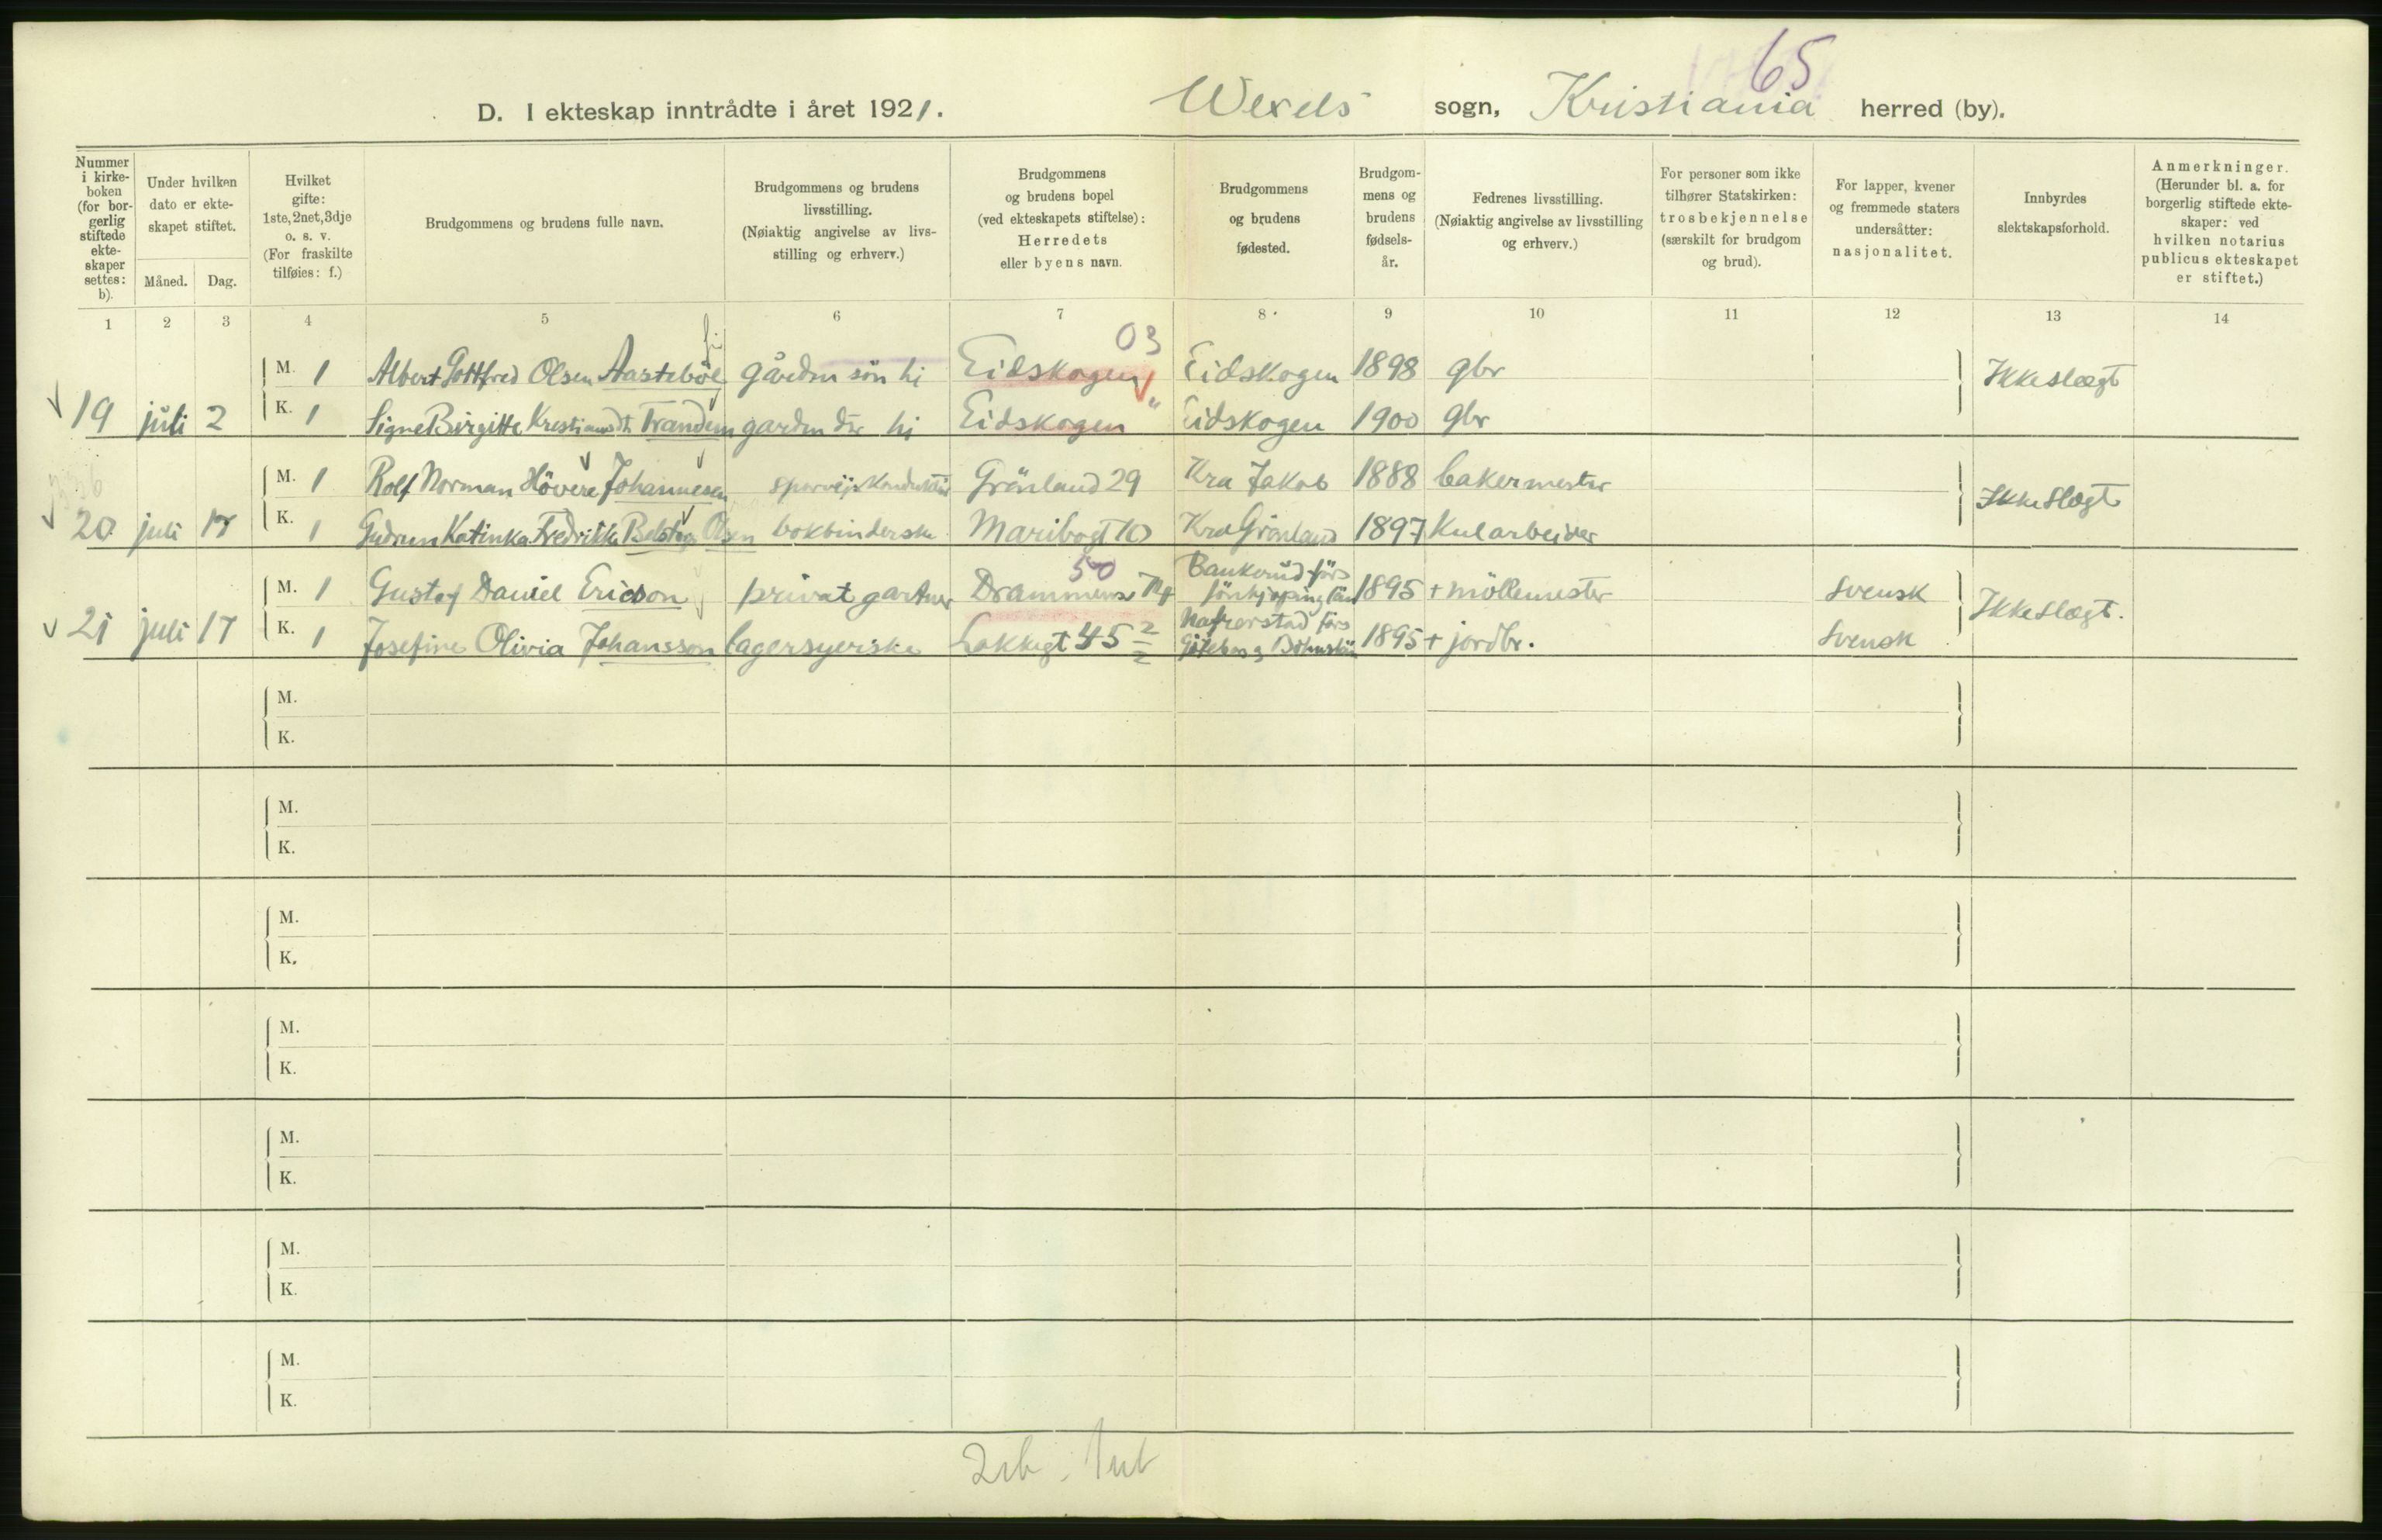 65
D. I ekteskap inntrådte i året 1921. Wexels sogn, Kristiania herred (by).
Nummer i kirke-boken (for bor-gerlig stiftede ekte-skaper settes: b).
Under hvilken dato er ekte-skapet stiftet.
Måned.
Dag.
Hvilket gifte: 1ste, 2net, 3dje o. s. v. (For fraskilte tilføies: f.)
Brudgommens og brudens fulle navn.
Brudgommens og brudens livsstilling. (Nøiaktig angivelse av livs-stilling og erhverv.)
Brudgommens og brudens bopel (ved ekteskapets stiftelse): Herredets eller byens navn.
Brudgommens og brudens fødested.
Brudgom-mens og brudens fødsels-år.
Fedrenes livsstilling. (Nøiaktig angivelse av livsstilling og erhverv.)
For personer som ikke tilhører Statskirken: trosbekjennelse (særskilt for brudgom og brud).
For lapper, kvener og fremmede staters undersåtter: nasjonalitet.
Innbyrdes slektskapsforhold.
Anmerkninger. (Herunder bl. a. for borgerlig stiftede ekte-skaper: ved hvilken notarius publicus ekteskapet er stiftet.)
1 2 3 4 5 6 7 8 9 10 11 12 13 14
03
M. 1 Albert Gottfred Olsen Aastebøl gården søn hj Eidskogen Eidskogen 1898 gbr Ikke slægt
19 juli 2 K. 1 Signe Birgitte Trandem garden dtr hj Eidskogen Eidskogen 1900 gbr
M. 1 Rolf Norman Hövere Johannesen Grönland 29 Kra Jakob 1888 bakermester Ikke slægt
20 juli K. 1 Gudrun Katinka Fredrikke Olsen bokbinderske Maribogt 10 Kra Grönland 1897 Kularbeider
50
M. 1 Gustaf Daniel Ericson privat gartner Bankerüd förs Jönkjøping län 1895 + möllemester Svensk Ikke slægt.
21 juli 17 K. 1 Josefine Olivia Johansson lagersyerske Lakkegt 45 förs Göteborg Bohuslän 1895 + jordbr. Svensk
M.
K.
M.
K.
M.
K.
M.
K.
M.
K.
M.
K.
M.
K.